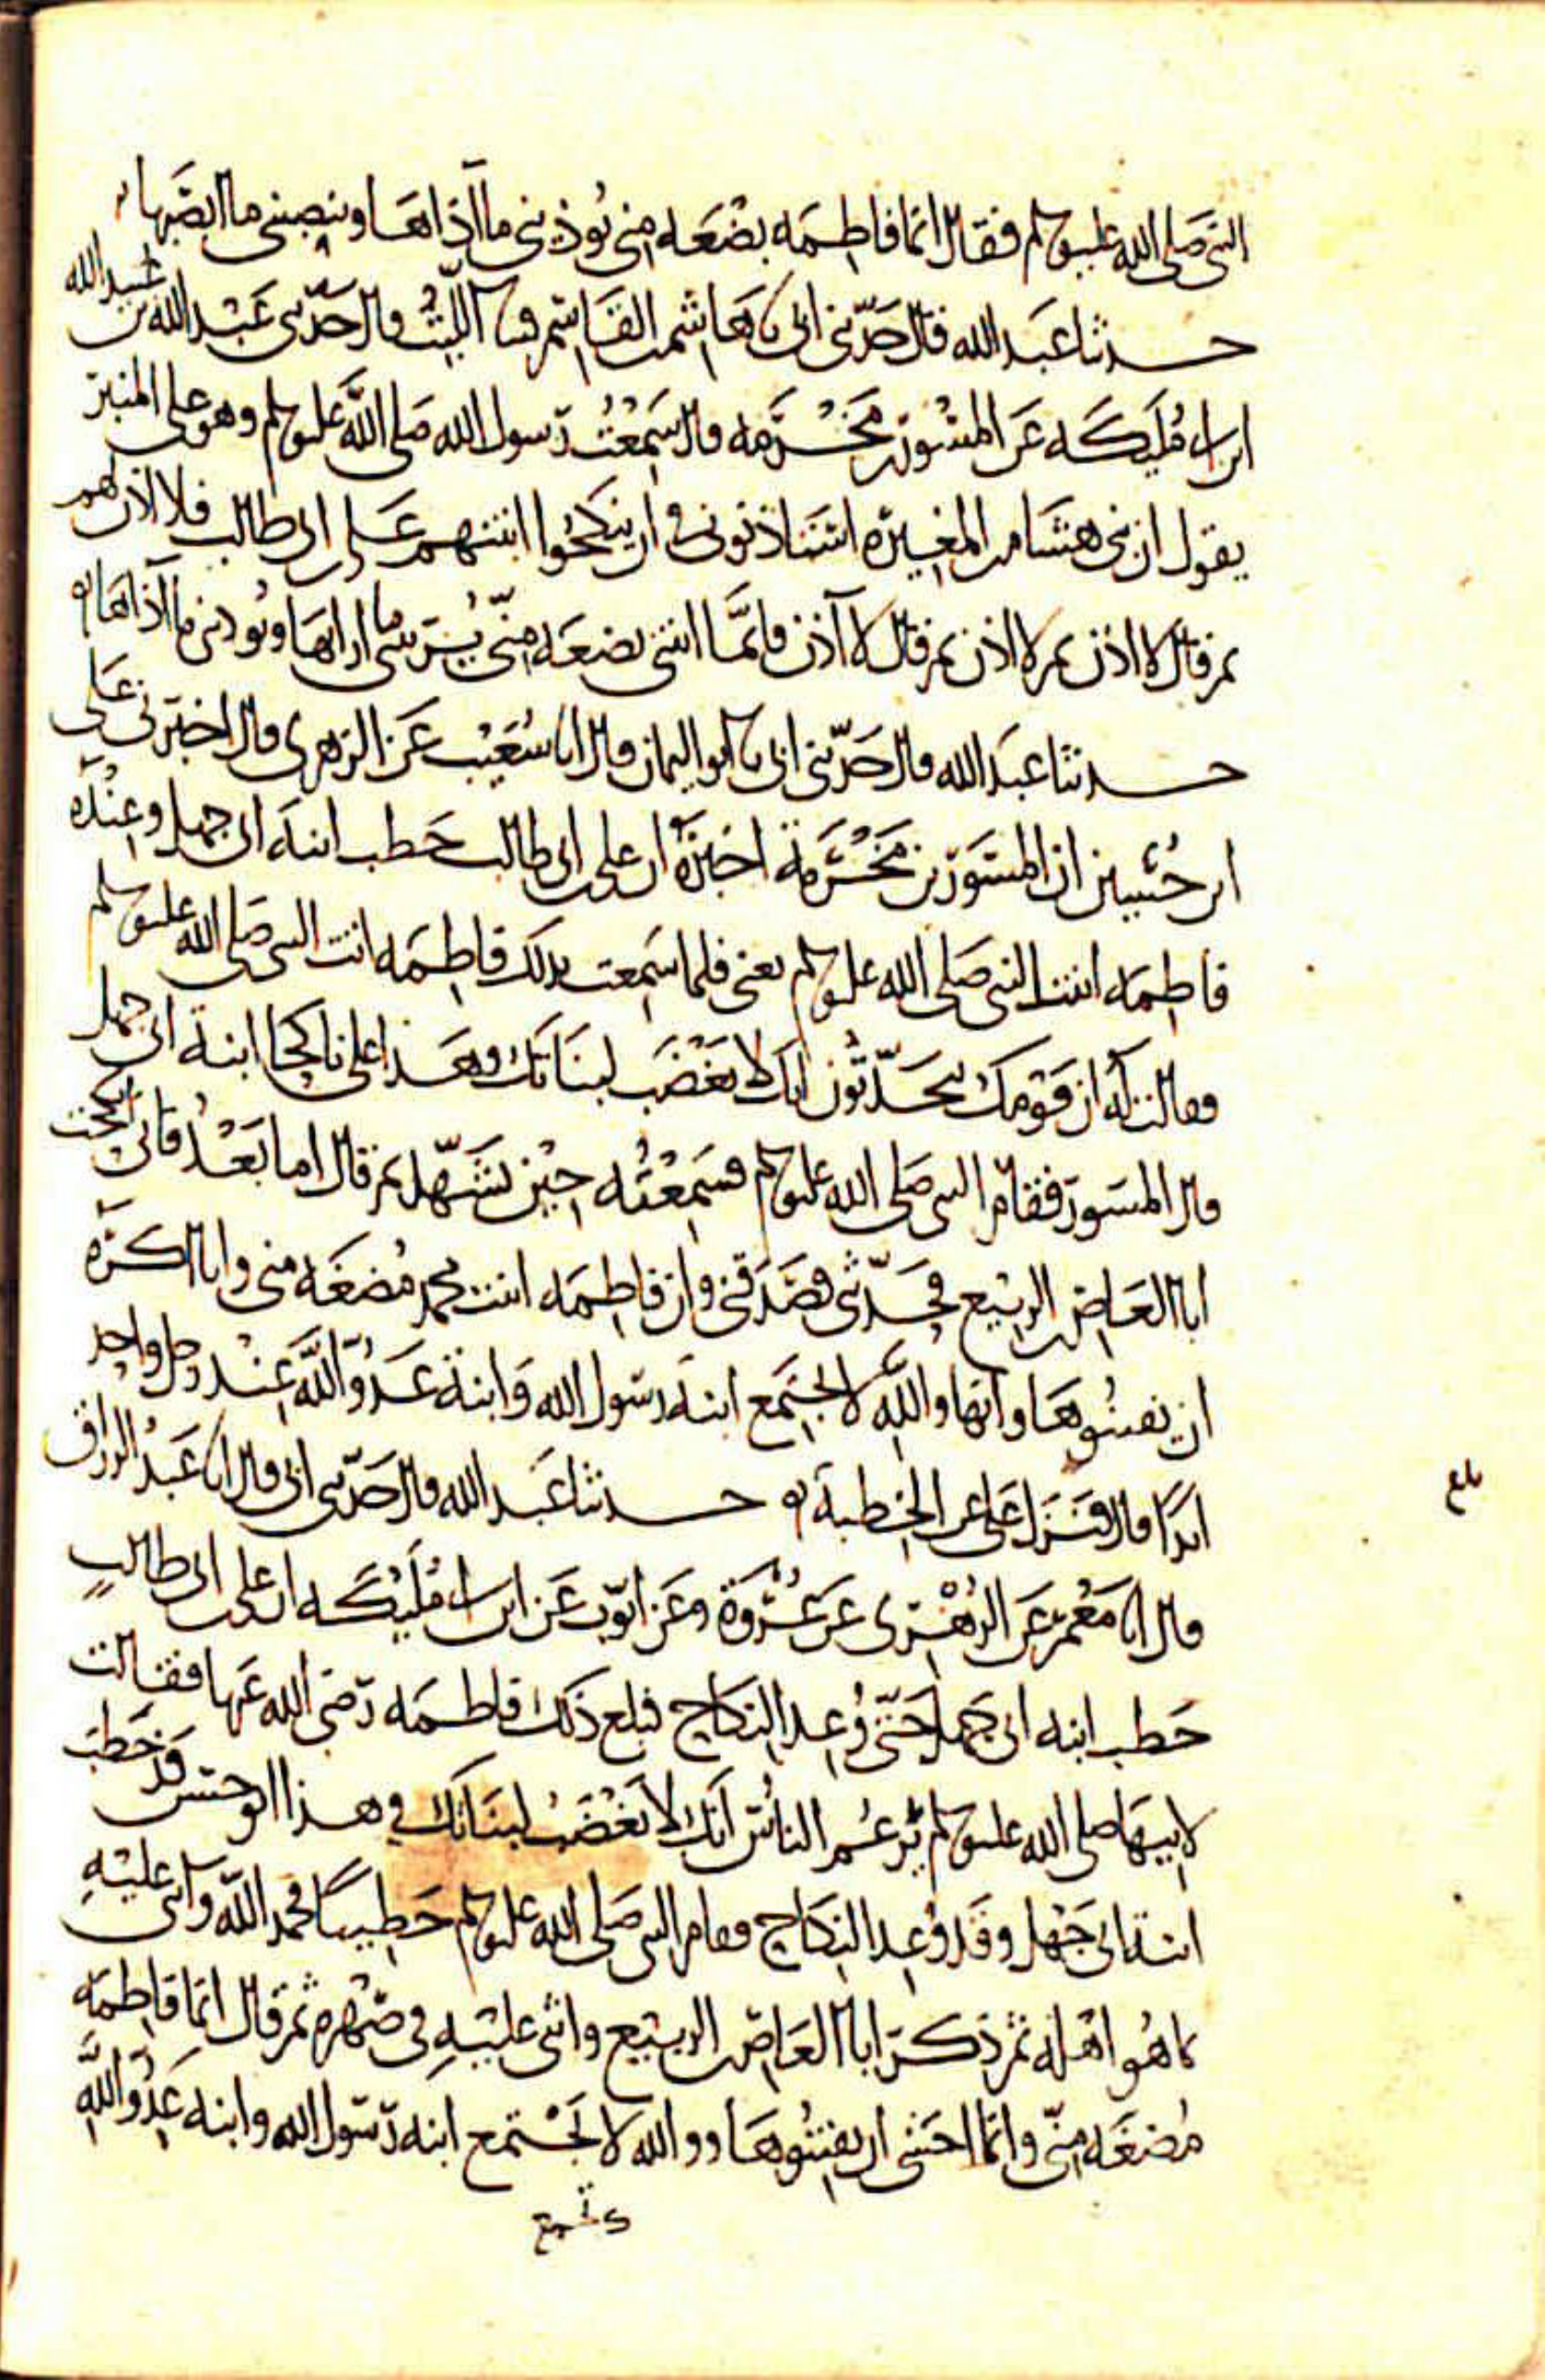 النبي صلى الله عليه وسلم فقال انما فاطمه بضعه مني يؤذيني ما آذاها وينصبني ما انصبها
حدثنا عبد الله قال حدثني ابي نا هاشم بن القاسم قثنا الليث قال حدثني عبد الله بن عبيد الله
ابن ابي مليكه عن المسور بن مخرمه قال سمعت رسول الله صلى الله عليه وسلم وهو على المنبر
يقول ان بني هشام بن المغيره استاذنوني في ان ينكحوا ابنتهم علي بن ابي طالب فلا آذن لهم
ثم قال لا اذن ثم لا اذن ثم قال لا آذن فانما ابنتي بضعه مني يريبني ما ارابها ويؤذيني ما آذاها
حدثنا عبد الله قال حدثني ابي نا ابو اليمان قال انا شعيب عن الزهري قال اخبرني علي
ابن حسين ان المسور بن مخرمة اخبره ان علي بن ابي طالب خطب ابنة ابي جهل وعنده
فاطمه ابنت النبي صلى الله عليه وسلم يعني فلما سمعت بذلك فاطمه اتت النبي صلى الله عليه وسلم
فقالت له ان قومك يتحدثون انك لا تغضب لبناتك وهذا علي ناكحا ابنة ابي جهل
قال المسور فقام النبي صلى الله عليه وسلم فسمعته حين تشهد ثم قال اما بعد فاني انكحت
ابا العاص بن الربيع فحدثني فصدقني وان فاطمه ابنت محمد مضغه مني وانا اكره
ان يفتنوها وانها والله لا تجتمع ابنة رسول الله وابنة عدو الله عند رجل واحد
ابدا قال فنزل علي عن الخطبة حدثنا عبد الله قال حدثني ابي قال انا عبد الرزاق
قال انا معمر عن الزهري عن عروة وعن ايوب عن ابن ابي مليكه ان علي بن ابي طالب
خطب ابنه ابي جهل حتى وعد النكاح فبلغ ذلك فاطمه رضي الله عنها فقالت
لابيها صلى الله عليه وسلم يزعم الناس انك لا تغضب لبناتك وهذا ابو حسن قد خطب
ابنة ابي جهل وقد وعد النكاح فقام النبي صلى الله عليه وسلم خطيبا فحمد الله واثنى عليه
بما هو اهله ثم ذكر ابا العاص بن الربيع واثنى عليه في صهره ثم قال انما فاطمه
مضغه مني وانما اخشى ان يفتنوها ووالله لا تجتمع ابنه رسول الله وابنه عدو الله
بلغ